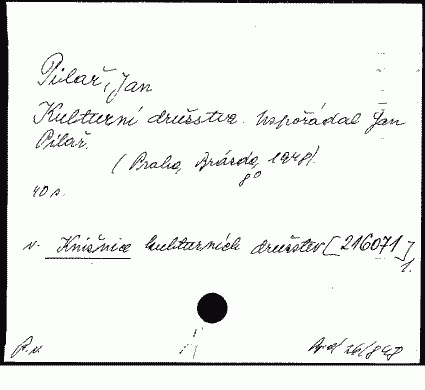 Pilař, Jan
Kulturní družstva. Uspořádal Jan
Pilař.
(Praha, Brázda, 1948).
8°
40 s.
v. Knižnice kulturních družstev [216071]
1.